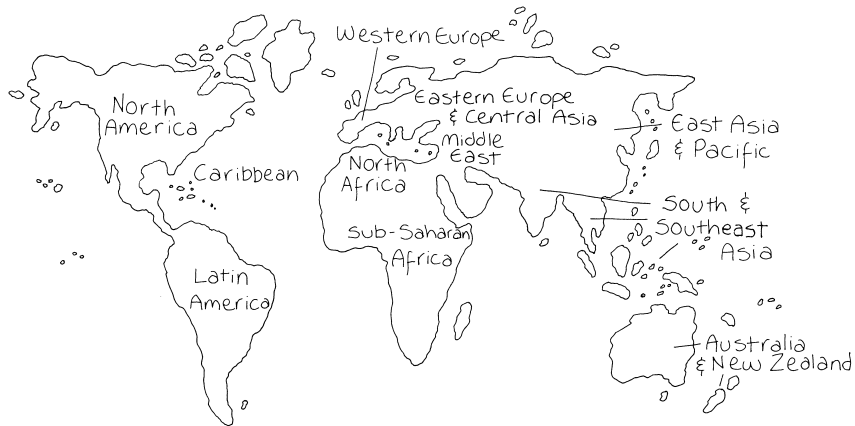 Western Europe
North
America
Eastern Europe
& Central Asia
East Asia
& Pacific
Middle
East
Caribbean
North
Africa
South &
Southeast
Asia
Sub-Saharan
Africa
Latin
America
Australia
& New Zealand